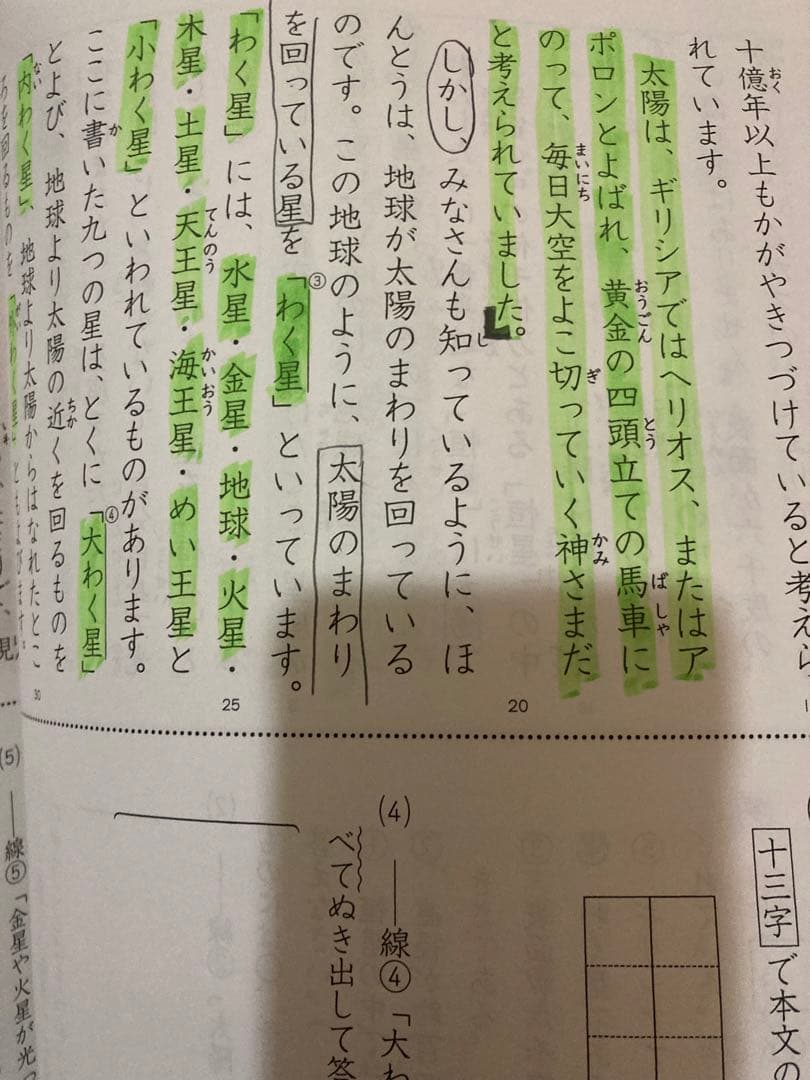 十億年以上もかがやきつづけていると考えら
れています。
太陽は、ギリシアではヘリオス、またはア
ポロンとよばれ、黄金の四頭立ての馬車に
のって、毎日大空をよこ切っていく神さまだ
と考えられていました。
しかし、みなさんも知っているように、ほ
んとうは、地球が太陽のまわりを回っている
のです。この地球のように、太陽のまわり
を回っている星を③「わく星」といっています。
「わく星」には、水星・金星・地球・火星・
木星・土星・天王星・海王星・めい王星と
「小わく星」といわれているものがあります。
ここに書いた九つの星は、とくに④「大わく星」
とよび、地球より太陽の近くを回るものを
「内わく星」、地球より太陽からはなれたとこ
ろを回るものを
20
25
30
十三字で本文の
(4) ——線④「大わ
べてぬき出して答
(5) ——線⑤「金星や火星が光